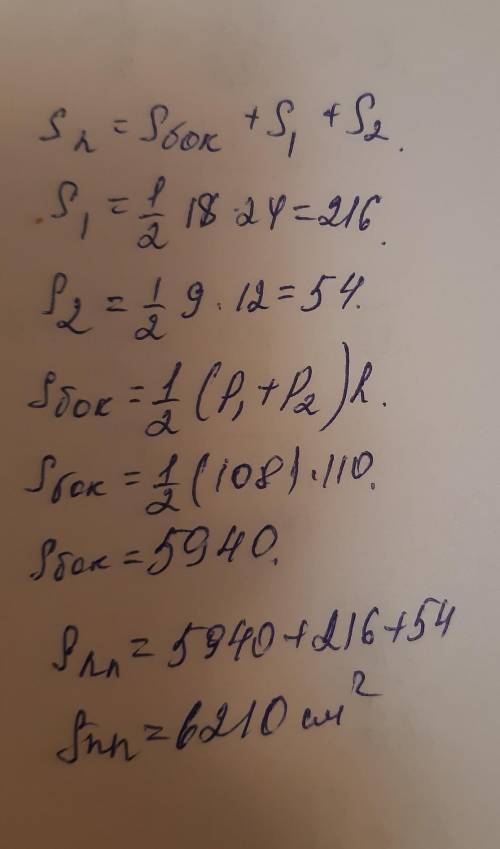 Sп = Sбок + S₁ + S₂.
S₁ = 1/2 18 · 24 = 216.
S₂ = 1/2 9 · 12 = 54.
Sбок = 1/2 (P₁ + P₂) h.
Sбок = 1/2 (108) · 110.
Sбок = 5940.
Sпп = 5940 + 216 + 54
Sпп = 6210 см²